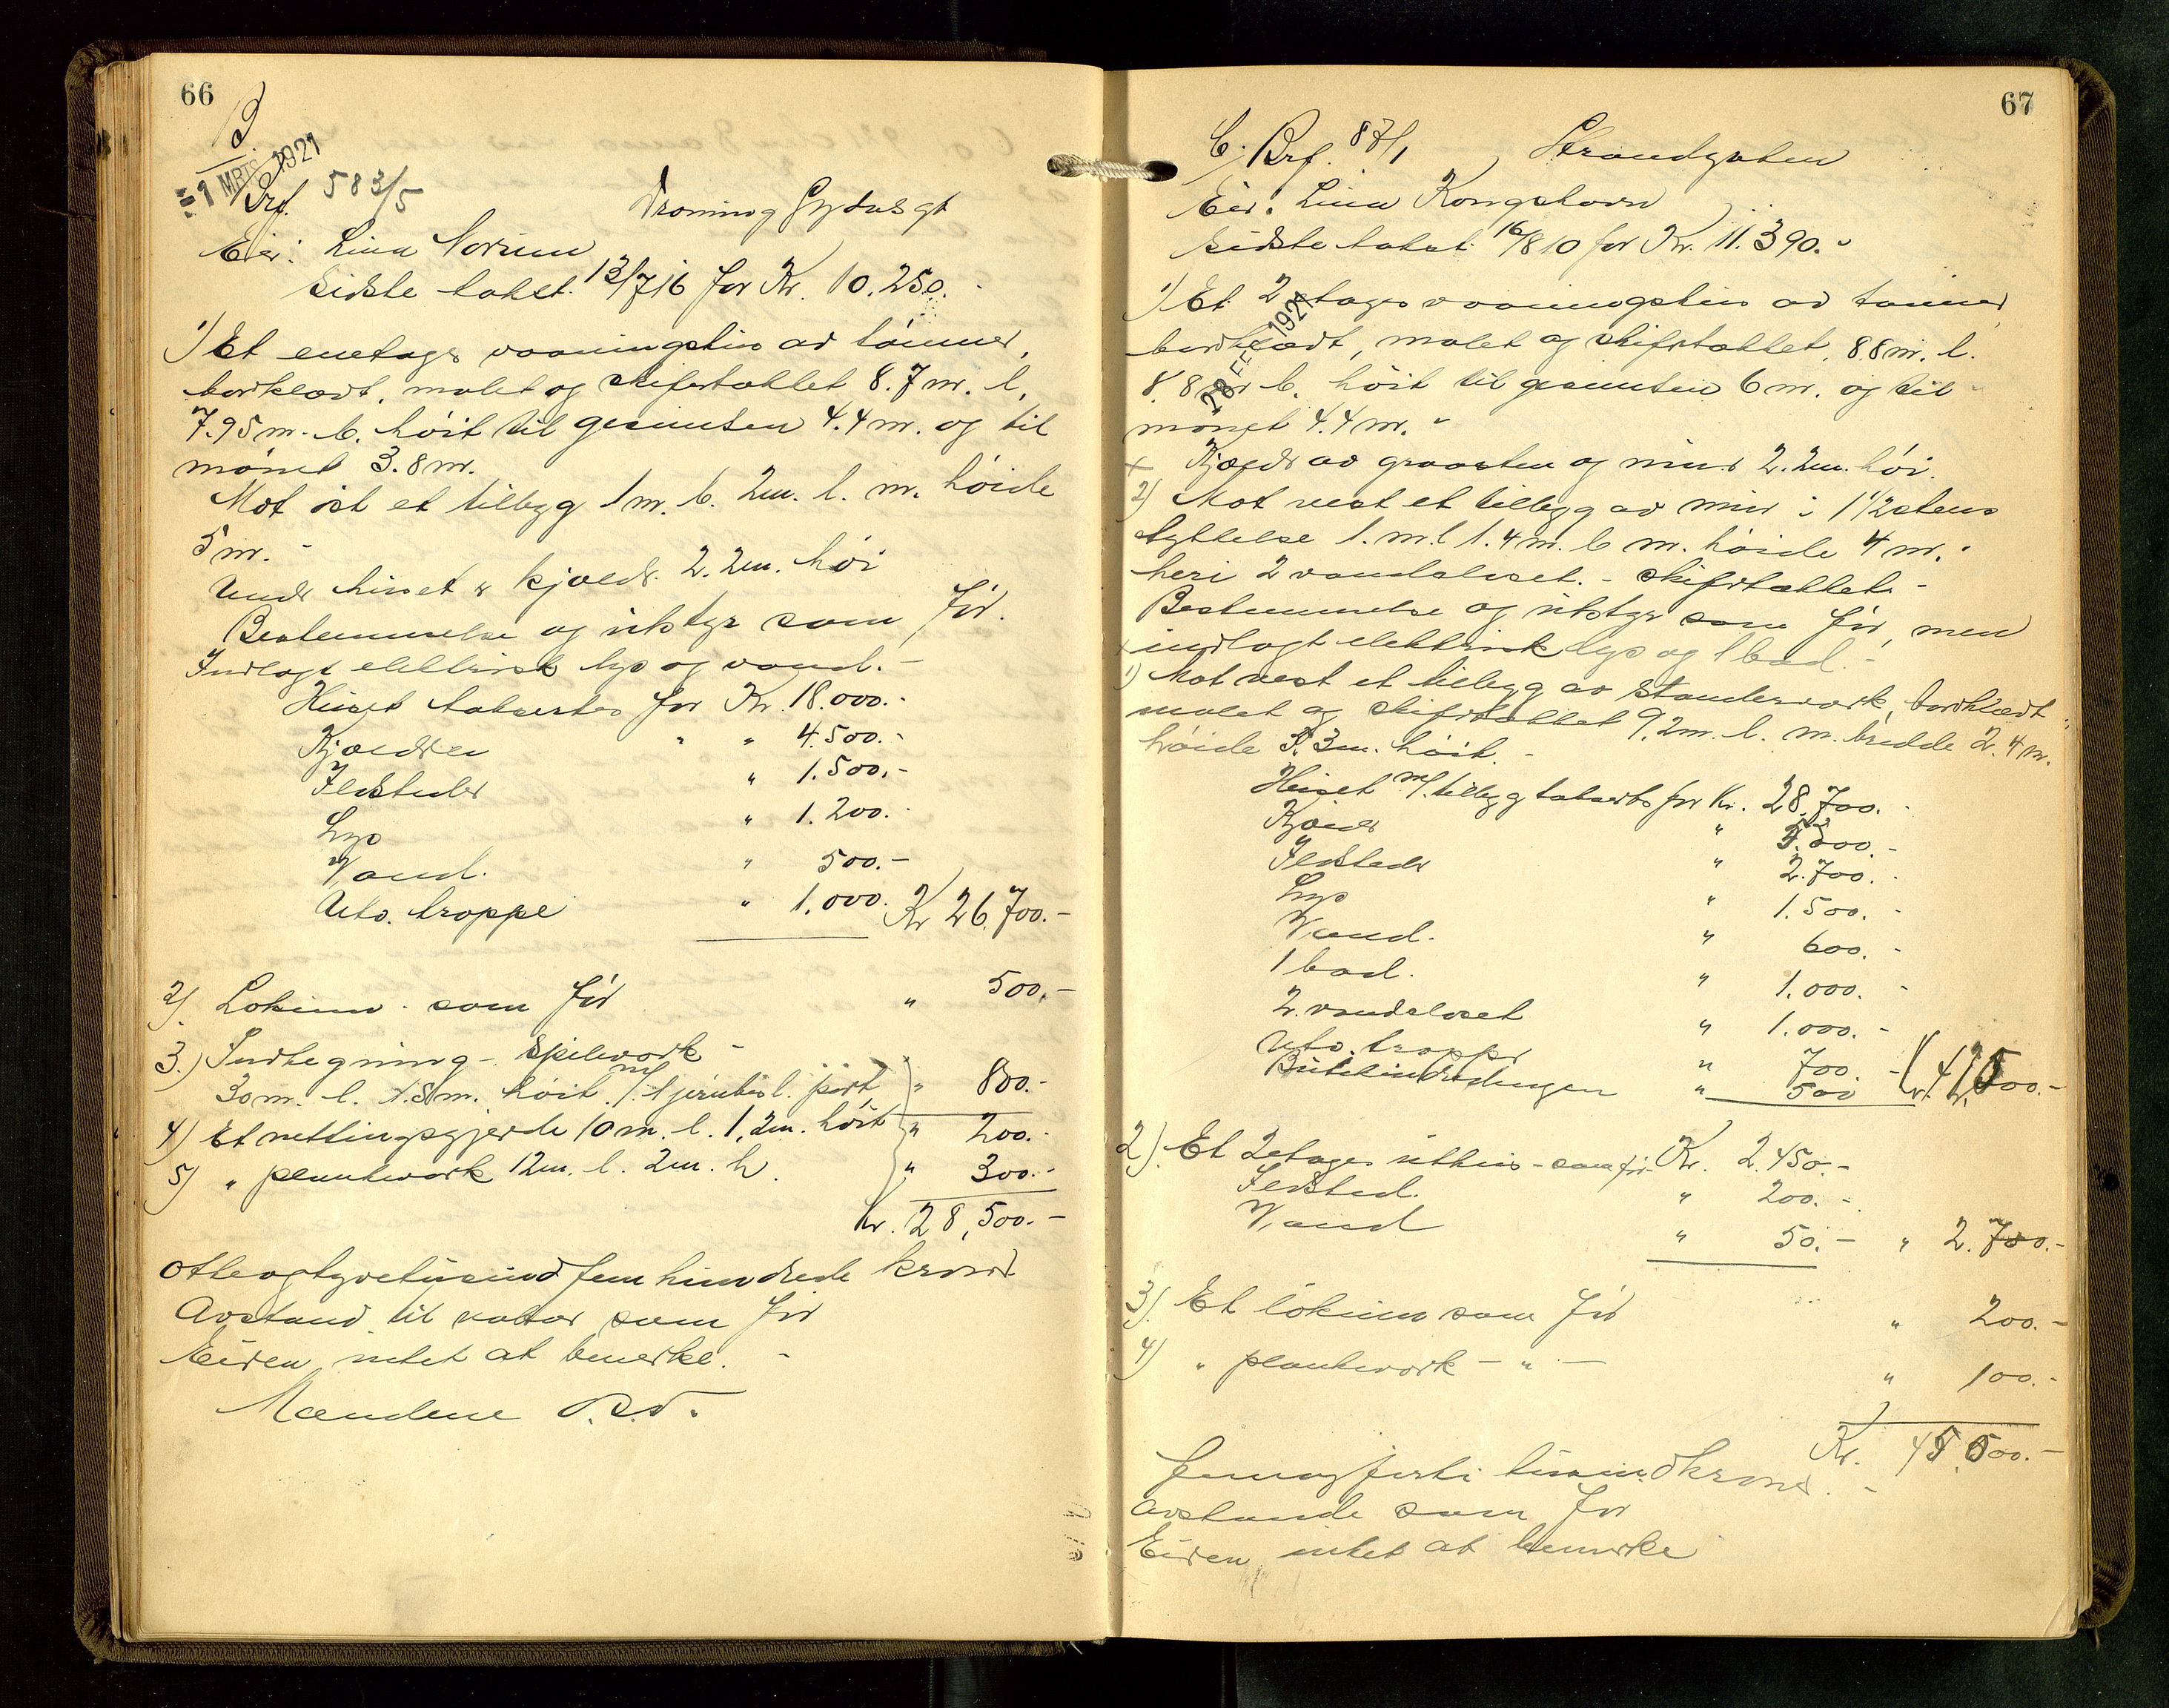 66
B.
- 1 MRTS 1921
Brf. 583/5 Dronning Gydas gt
Eier: Lina Norum
Sidste takst. 13/7 16 for Kr. 10.250.-
1) Et enetages vaaningshus av tømmer,
bordklædt, malet og skifertækket 8.7 m. l.
7.95 m. b. høit til gesimsen 4.4 m. og til
mønet 3.8 m.
Mot øst et tilbygg 1 m. b. 2 m. l. m. høide
5 m. -
Under huset er kjælder 2.2 m. høi
Bestemmelse og utstyr som før.
Indlagt elektrisk lys og vand. -
Huset takseres for Kr. 18.000.-
Kjælderen " " 4.500.-
Ildsteder " 1.500.-
Lys " 1.200.-
Vand. " 500.-
Utv. trappe " 1.000. Kr 26.700.-
2) Lokum - som før " 500.-
3.) Indhegning - spileverk -
30 m. l. 1.8 m. høit m/ 1 jernbesl. port " 800.-
4) Et nettingsgjerde 10 m. l. 1.2 m. høit " 200.-
5) " plankeverk 12 m. l. 2 m. h. " 300.-
Kr. 28,500.-
Otteogtyvetusind fem hundrede kroner
Avstand til vatar som før
Eieren intet at bemerke. -
Mændene d.s.v.
67
C. Brf. 87/1 Strandgaten
Eier: Lina Kongshavn
Sidste takst. 16/8 10 for Kr. 11.390.-
28 FEB 1921
1) Et 2 etages vaaningshus av tømmer
bordklædt, malet og skifertækket, 8.8 m. l.
8.8 m b. høit til gesimsen 6 m. og til
mønet 4.4 m. -
x Kjælder av graasten og mur 2.2 m. høi.
2) Mot vest et tilbygg av mur i 1 1/2 stens
tykkelse 1. m. l 1.4 m. b m. høide 4 m. -
heri 2 vandcloset. - skifertækket -
Bestemmelse og utstyr som før, men
x indlagt elektrisk lys og 1 bad. -
1) Mot vest et tilbygg av standerverk, bordklædt
malet og skifertækket 9.2 m. l. m. bredde 2.4 m.
høide 3.3 m. høit. -
Huset m/ tilbygg takseres for Kr. 28.700.-
Kjælder " 5.300.-
Ildsteder " 2.700.-
Lys " 1.500.-
Vand. " 600.-
1 bad. " 1.000.-
2. vandcloset " 1.000.-
Utv. trapper " 700 -
Butikindredningen " 500 Kr. 42,000.-
2). Et 2 etages uthus - som før Kr. 2.450.-
Ildsted. " 200.-
Vand " 50.- " 2.700.-
3). Et lokum som før " 200.-
4) " plankeverk - " - " 100.-
Kr. 45.000.-
Femogførti tusind kroner. -
Avstande som før
Eieren intet at bemerke